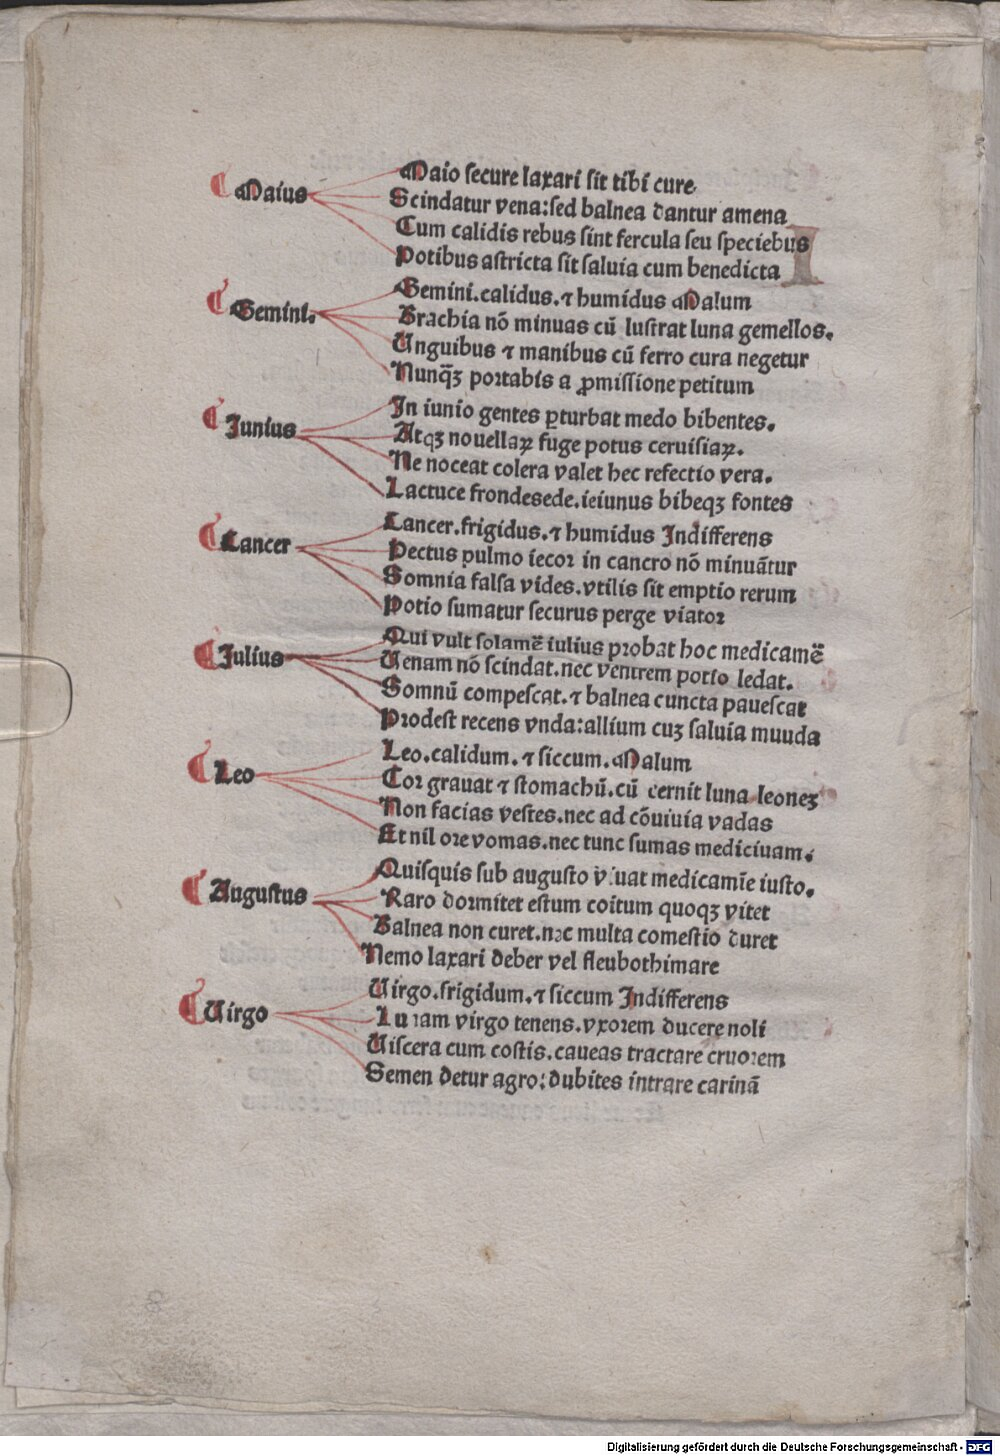 Maius
Maio secure laxari sit tibi cure
Scindatur vena:sed balnea dantur amena
Cum calidis rebus sint fercula seu speciebus
Potibus astricta sit saluia cum benedicta
Gemini.
Gemini.calidus.⁊ humidus Malum
Brachia nõ minuas cũ lustrat luna gemellos.
Unguibus ⁊ manibus cũ ferro cura negetur
Nunq̃ꝫ portabis a ꝓmissione petitum
Junius
In iunio gentes ꝑturbat medo bibentes.
Atqꝫ nouellaꝝ fuge potus ceruisiaꝝ.
Ne noceat colera valet hec refectio vera.
Lactuce frondesede.ieiunus bibeqꝫ fontes
Cancer
Cancer.frigidus.⁊ humidus Indifferens
Pectus pulmo iecor in cancro nõ minuãtur
Somnia falsa vides.vtilis sit emptio rerum
Potio sumatur securus perge viator
Julius
Qui vult solamẽ iulius probat hoc medicamẽ
Uenam nõ scindat.nec ventrem potio ledat.
Somnũ compescat.⁊ balnea cuncta pauescat
Prodest recens vnda:allium cuꝫ saluia muuda
Leo
Leo.calidum.⁊ siccum.Malum
Cor grauat ⁊ stomachũ.cũ cernit luna leoneꝫ
Non facias vestes.nec ad cõuiuia vadas
Et nil ore vomas.nec tunc sumas mediciuam.
Augustus
Quisquis sub augusto viuat medicamĩe iusto.
Raro dormitet estum coitum quoqꝫ vitet
Balnea non curet.nec multa comestio duret
Nemo laxari deber vel fleubothimare
Uirgo
Uirgo.frigidum.⁊ siccum Indifferens
Lunam virgo tenens.vxorem ducere noli
Uiscera cum costis.caueas tractare cruorem
Semen detur agro:dubites intrare carinã
Digitalisierung gefördert durch die Deutsche Forschungsgemeinschaft - DFG